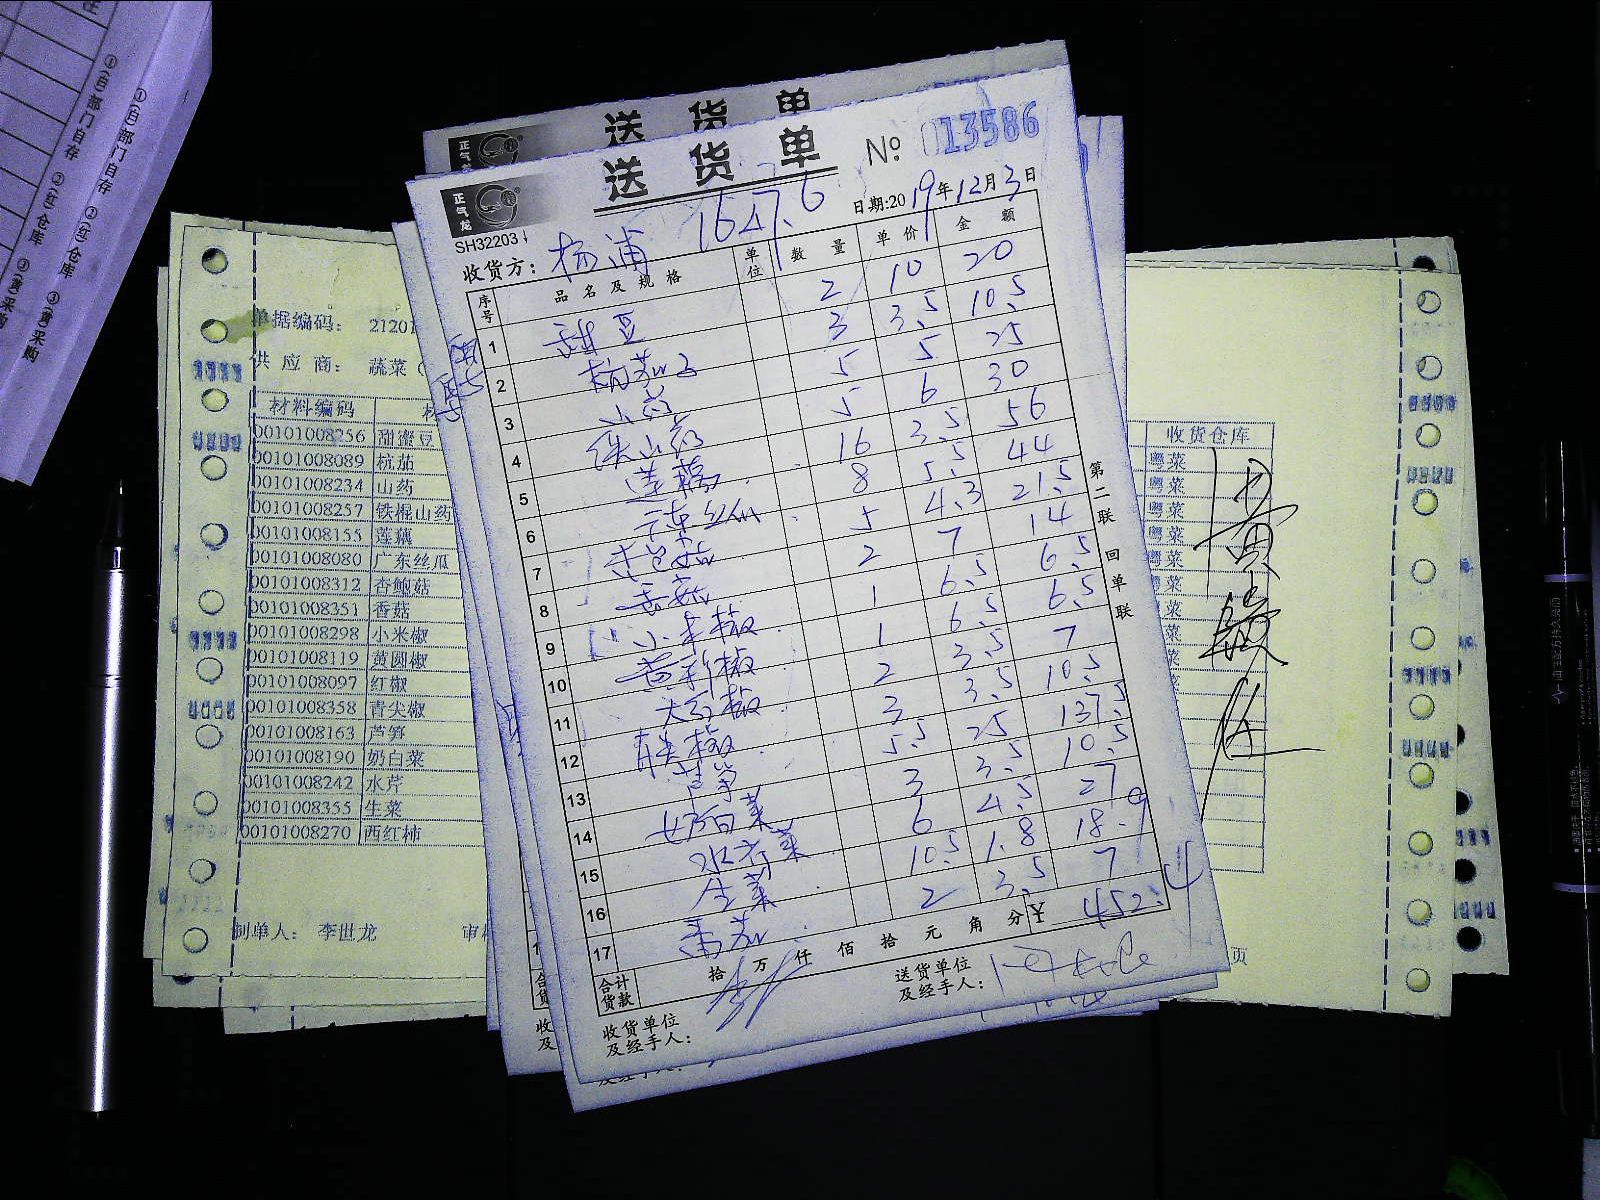 ①(白)部门自存 ②(红)仓库 ③(黄)采购
①(白)部门自存 ②(红)仓库 ③(黄)采购
送 货 单
正气龙
送 货 单
№ 013586
正气龙
SH32203
1647.6
日期:2019年12月3日
收货方: 杨浦
序号 品名及规格 单位 数量 单价 金额
1 甜豆 2 10 20
2 杭茄子 3 3.5 10.5
3 山药 5 5 25
4 铁山药 5 6 30
5 莲藕 16 3.5 56
6 广东丝瓜 8 5.5 44
7 杏包菇 5 4.3 21.5
8 香菇 2 7 14
9 小米椒 1 6.5 6.5
10 黄彩椒 1 6.5 6.5
11 大红椒 2 3.5 7
12 青尖椒 3 3.5 10.5
13 芦笋 5.5 25 137.5
14 奶白菜 3 3.5 10.5
15 水芹菜 6 4.5 27
16 生菜 10.5 1.8 18.9
17 番茄 2 3.5 7
合计货款 拾 万 仟 佰 拾 元 角 分 ¥ 452.4
收货单位及经手人:
送货单位及经手人:
第二联 回单联
单据编码: 21201
供应商: 蔬菜(
材料编码
00101008256 甜蜜豆
00101008089 杭茄
00101008234 山药
00101008257 铁棍山药
00101008155 莲藕
00101008080 广东丝瓜
00101008312 杏鲍菇
00101008351 香菇
00101008298 小米椒
00101008119 黄圆椒
00101008097 红椒
00101008358 青尖椒
00101008163 芦笋
00101008190 奶白菜
00101008242 水芹
00101008355 生菜
00101008270 西红柿
制单人: 李世龙
收货仓库
粤菜
粤菜
粤菜
粤菜
粤菜
菜
菜
菜
页